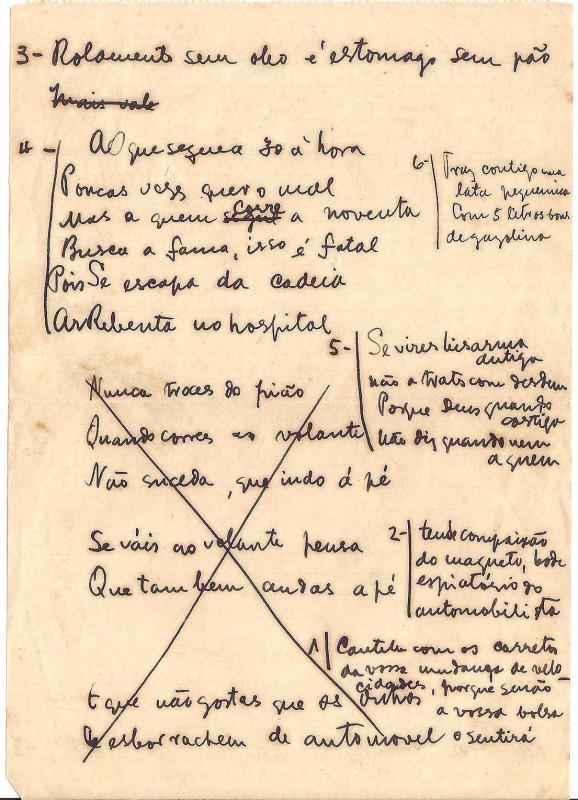 3 - Rolamento sem oleo é estomago sem pão
Mais vale
4 - Ao que segue a 30 á hora
Poucas vezes quer o mal
Mas a quem corre a noventa
Busca a fama, isso é fatal
Pois Se escapa da cadeia
ArRebenta no hospital
6 - Traz contigo uma
lata pequenina
Com 5 litros bons
de gazolina
5 - Se vires lisarma
antiga
não a trats com desdem
Porque Deus quando
castiga
Não diz quando nem
a quem
Nunca troces do pião
Quando corres ao volante
Não suceda, que indo á pé
Se váis ao volante pensa
Que tambem andas a pé
2 - tende compaixão
do magneto, bode
espiatório do
automobilista
1 Cautela com os carretos
da vossa mudança de velo
cidades, porque senão
a vossa bolsa
o sentirá
E que não gostas que os outros
te esborrachem de automovel